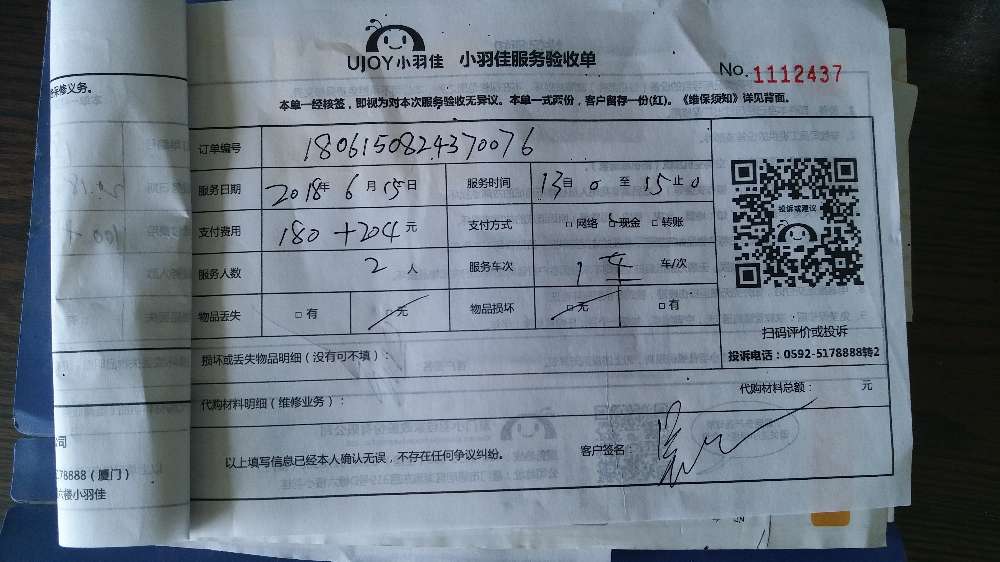 UJOY小羽佳 小羽佳服务验收单
No. 1112437
本单一经核签，即视为对本次服务验收无异议。本单一式两份，客户留存一份(红)。《维保须知》详见背面。
订单编号 1806150824370076
服务日期 2018年 6月15日 服务时间 13自0至15止0
支付费用 180+204元 支付方式 □网络 □现金 □转账
服务人数 2人 服务车次 1车 车/次
物品丢失 □有 □无 物品损坏 □无 □有
投诉或建议
扫码评价或投诉
投诉电话：0592-5178888转2
损坏或丢失物品明细（没有可不填）：
代购材料明细（维修业务）： 代购材料总额： 元
以上填写信息已经本人确认无误，不存在任何争议纠纷。 客户签名：
修义务。
公司
78888（厦门）
楼小羽佳